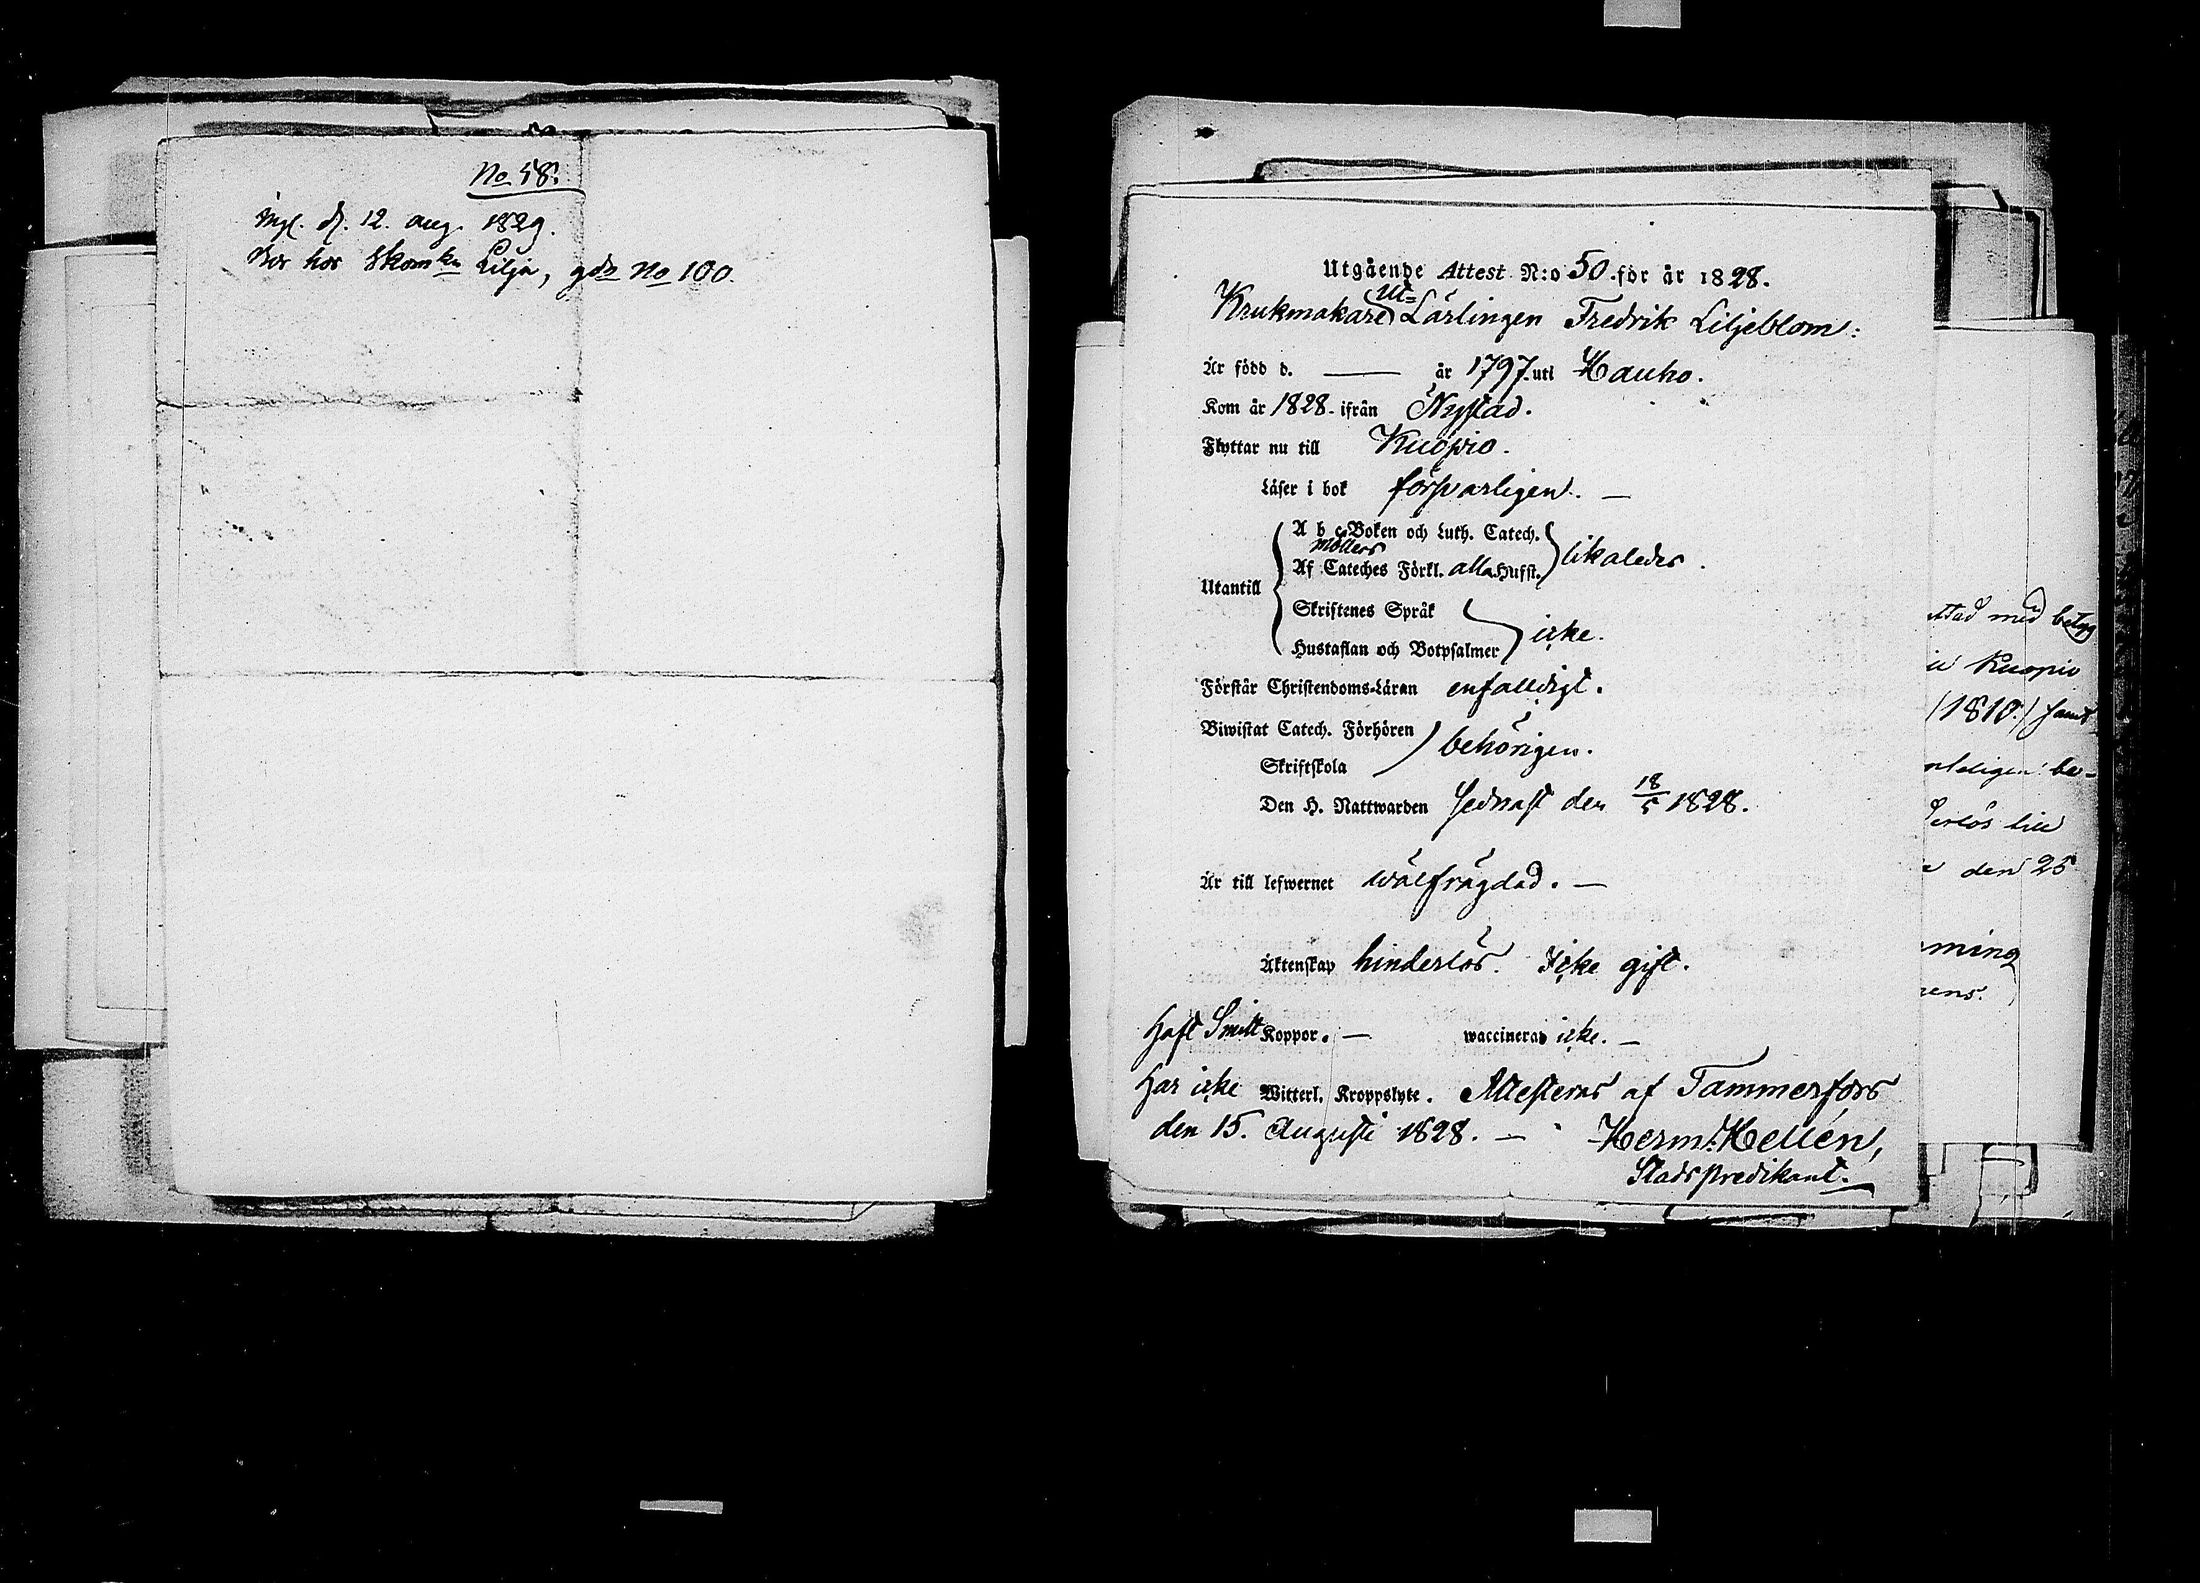 No 58.
Ingl. d. 12. aug. 1829.
Bor hos Skomkn Lilja, gdn No 100.
Utgående Attest N:o 50. för år 1828.
Ut=
Krukmakare Lärlingen Fredrik Liljeblom:
Är född d. — år 1797. uti Hauho.
Kom år 1828. ifrån Nystad.
Flyttar nu till Kuopio.
Läser i bok försvarligen. —
A b c Boken och Luth. Catech.
Möllers
Af Cateches Förkl. alla Hufst. likaledes.
Utantill
Skriftenes Språk
Hustaflan och Botpsalmer icke.
Förstår Christendoms-Läran enfalldigt.
Biwistat Catech. Förhören behörigen.
Skriftskola
Den H. Nattwarden sednast den 18/5 1828.
Är till lefwernet wälfrägdad. —
Äktenskap hinderlös. Icke gift.
Haft Smitt Koppor. — waccinerad icke. —
Har icke Witterl. Kroppslyte. Attesteras af Tammerfors
den 15. Augusti 1828. — Herm. Hellén,
Stadspredikant.
ttad med betyg
Kuopio
(1810.) samt
be-
den 25